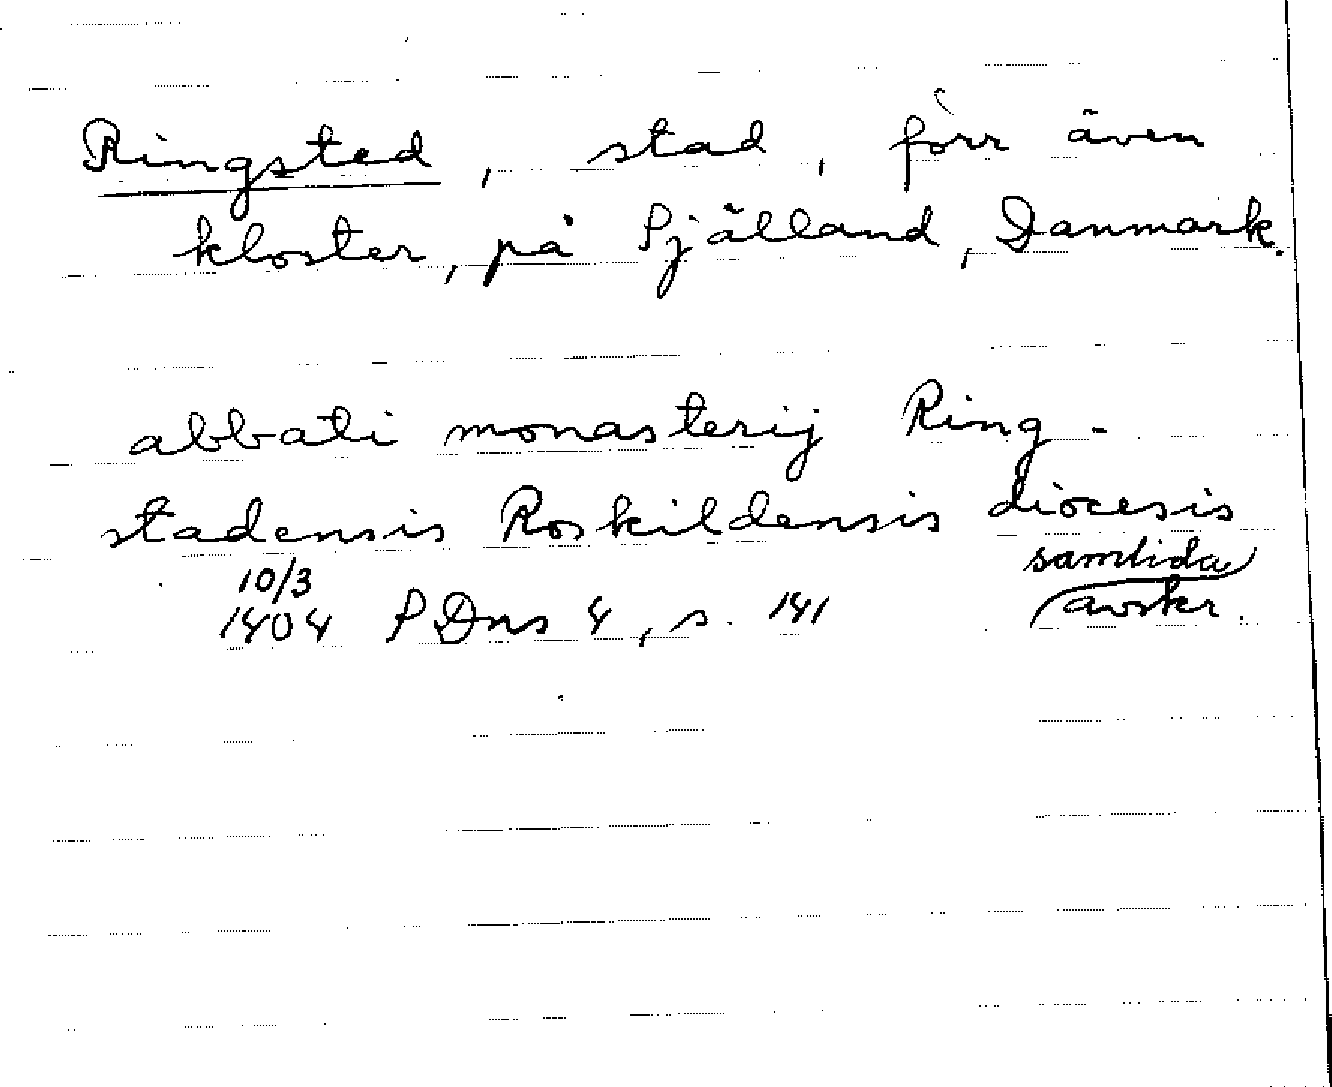 Ringsted, stad, förr även
kloster, på Själland, Danmark.
abbati monasterij Ring-
stadensis Roskildensis diocesis
10/3 samtida
1404 SDns 4, s. 141 avskr.